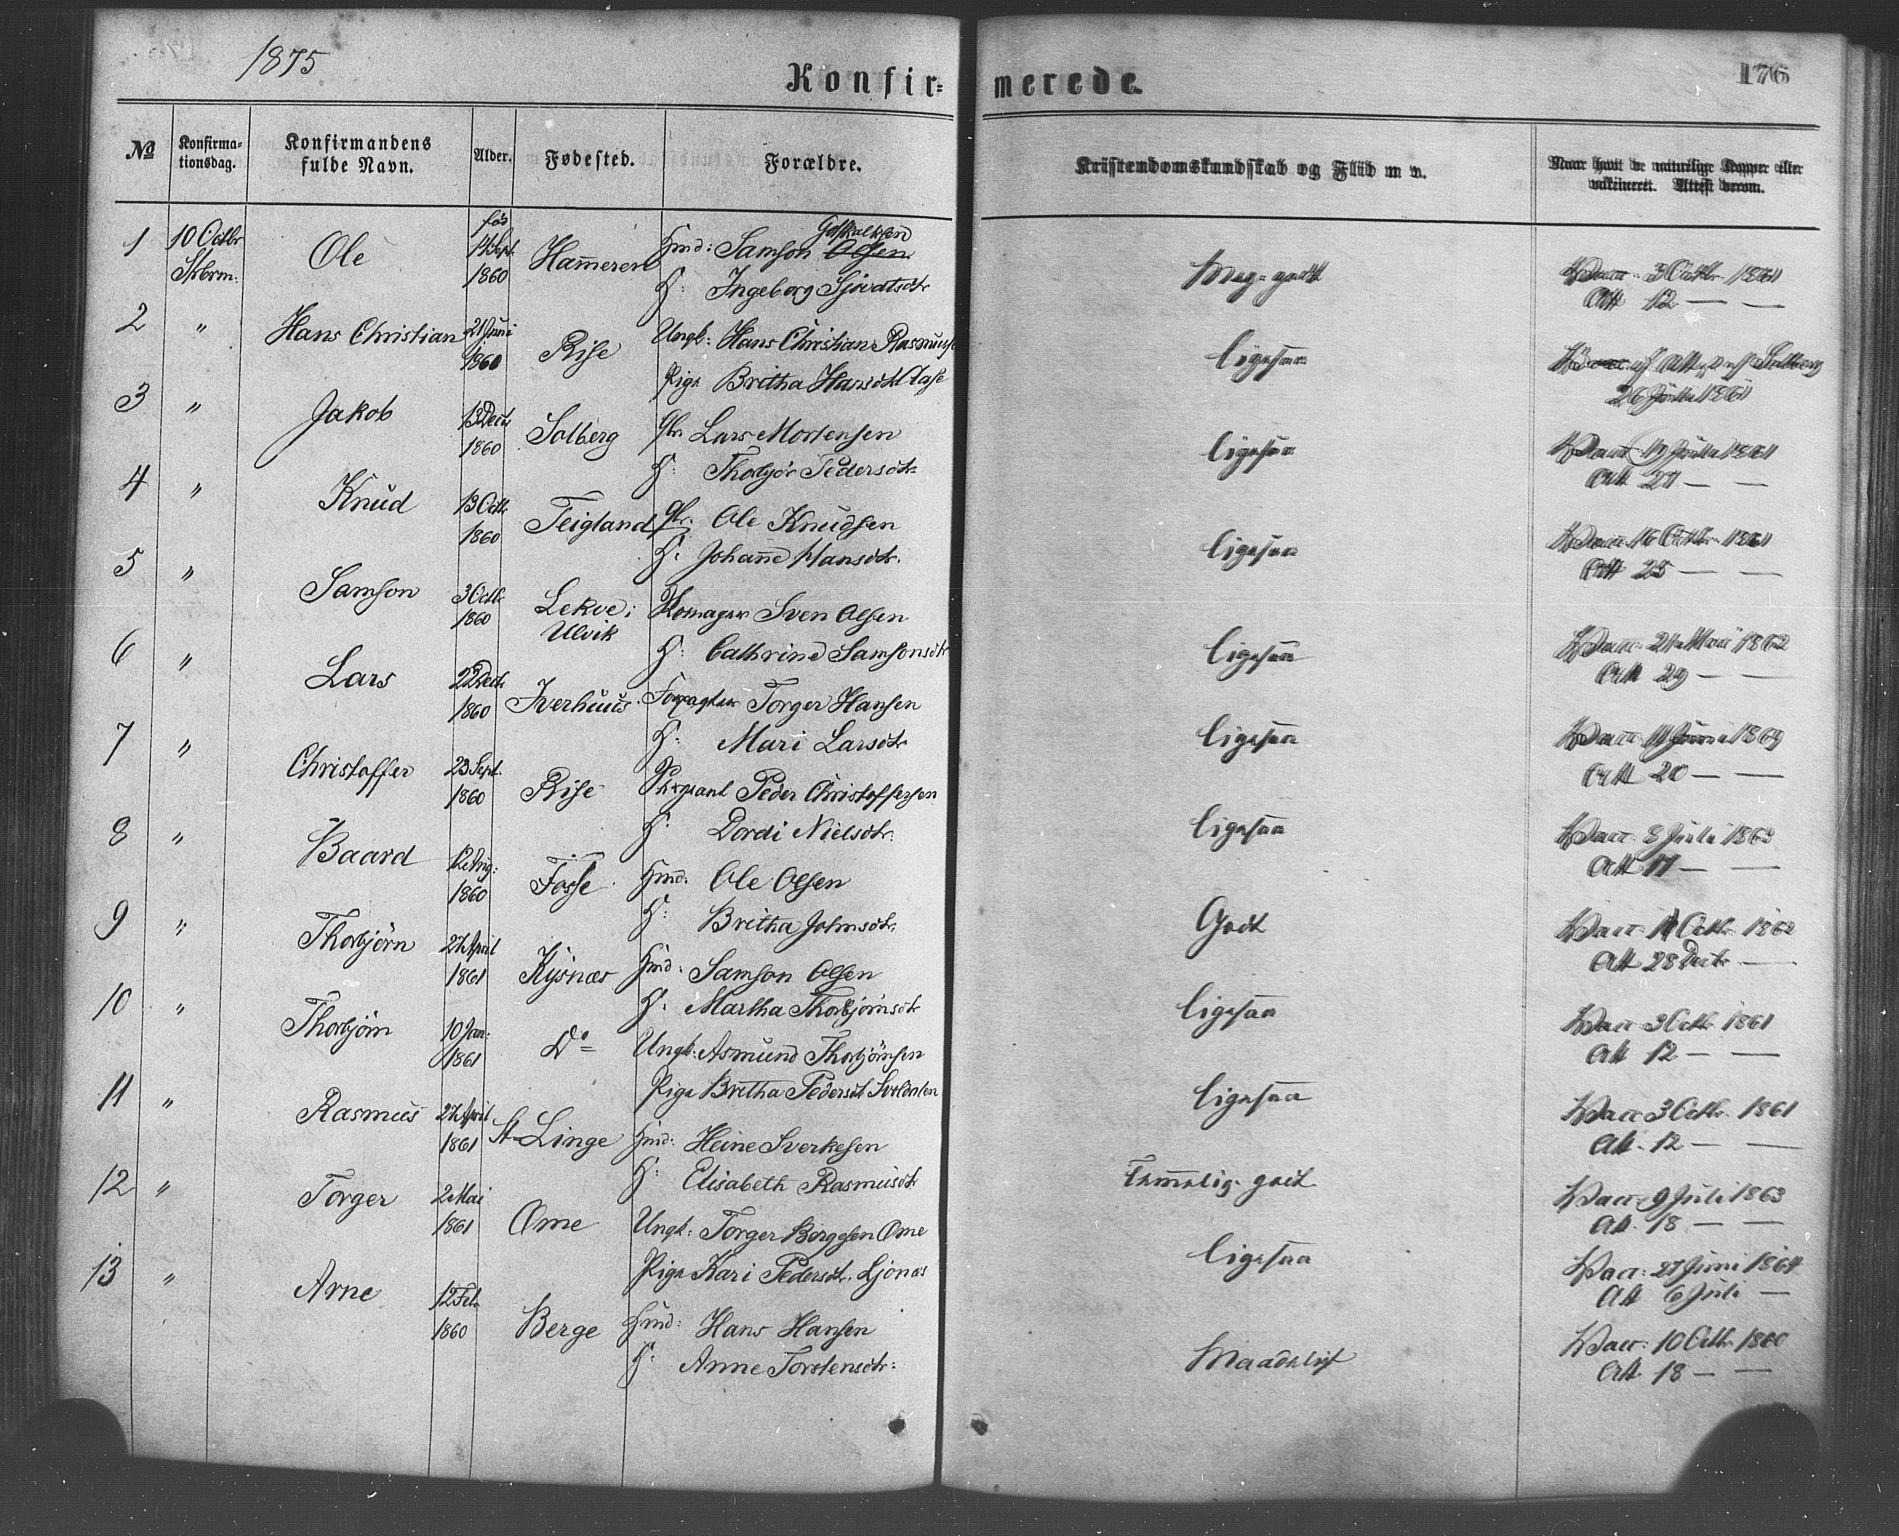 1875
Konfir=
merede.
176
No
Konfirma-
tionsdag.
Konfirmandens
fulde Navn.
Alder.
Fødested.
Forældre.
Kristendomskundskab og Flid m v.
Naar havt de naturlige Kopper eller
vakcineret. Attest derom.
1 10 Octbr Ole 14 Sept. 1860 Hammeren Hmd: Samson Olsen
Ingeborg Sjovatsdtr
Meg. godt
Vacc. 3 Octbr. 1861
Att 12 — —
2 " Hans Christian 21 Juni 1860 Rise Ungk: Hans Christian Rasmus
Pige Britha Hansdtr
Ligesaa
26 1861
3 " Jakob 13 Dect. 1860 Solberg Lars Mortensen
H: Thorbjør Pedersdtr
Ligesaa
Vacc. 19 1861
Att 27 — —
4 " Knud 13 Octb. 1860 Teigland Ole Knudsen
H. Johanne Hansdtr.
Ligesaa
Vacc. 16 Octbr. 1861
Att 25 — —
5 " Samson 3 Octb. 1860 Lekve i Ulvik Sven Olsen
H: Cathrine Samsonsdtr
Ligesaa
Vacc. Mai 1862
Att 29 — —
6 " Lars 22 Dect. 1860 Iverhuus Forpagter Torger Hansen
H: Mari Larsdtr
Ligesaa
Vacc. 11 Juni
Att 20 — —
7 " Christoffer 23 Sept. 1860 Rise Peder Christoffersen
H: Dordi Nielsdtr.
Ligesaa
Vacc. 8 Juli 1863
Att 17 — —
8 " Baard 1860 Fosse Hmd. Ole Olsen
H: Britha Johnsdtr.
Godt
Vacc. Octbr. 1862
Att 28 Decbr. —
9 " Thorbjørn 27 April 1861 Kysnæs Hmd: Samson Olsen
H. Martha Thorbjørnsdtr
Ligesaa
Vacc 3 Octbr 1861
Att 12 — —
10 " Thorbjørn 10 Jan: 1861 Do Ungk: Asmund Thorbjørnsen
Pige Britha Pedersdt Svoldalen
Ligesaa
Vacc 3 Octbr. 1861
Att. 12 — —
11 " Rasmus 27 April 1861 St Linge Hmd: Heine Sverkesen
H: Elisabeth Rasmusdtr
Temmelig godt
Vacc. 9 Juli 1863
Att. 18 — —
12 " Torger 2 Mai 1861 Ome Ungk: Torger Børgesen Ome
Pige Kari Pedersdtr. Ljonæs
Ligesaa
Vacc: 27 Juni 1864
Att 6 Juli —
13 " Arne 12 Feb. 1860 Berge Hmd: Hans Hansen
H: Anne Torstensdtr:
Maadelig
Vacc. 10 Octbr 1860
Att 18 — —